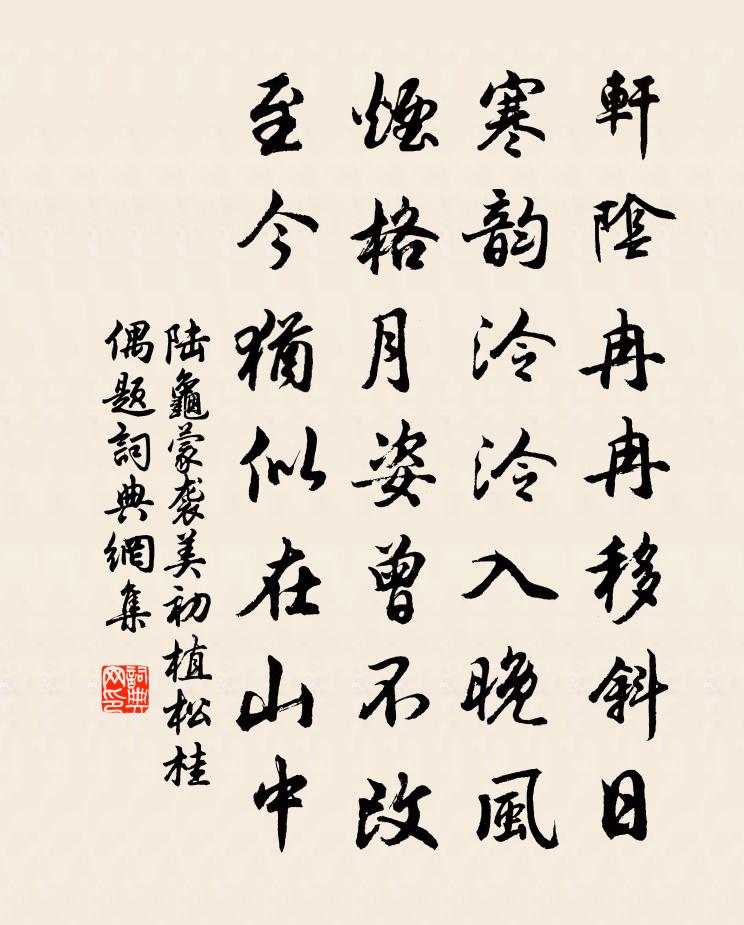 軒陰冉冉移斜日
寒韵泠泠入晚風
煙格月姿曾不改
至今猶似在山中
陆龜蒙袭美初植松桂
偶题詞典網集
詞典网印